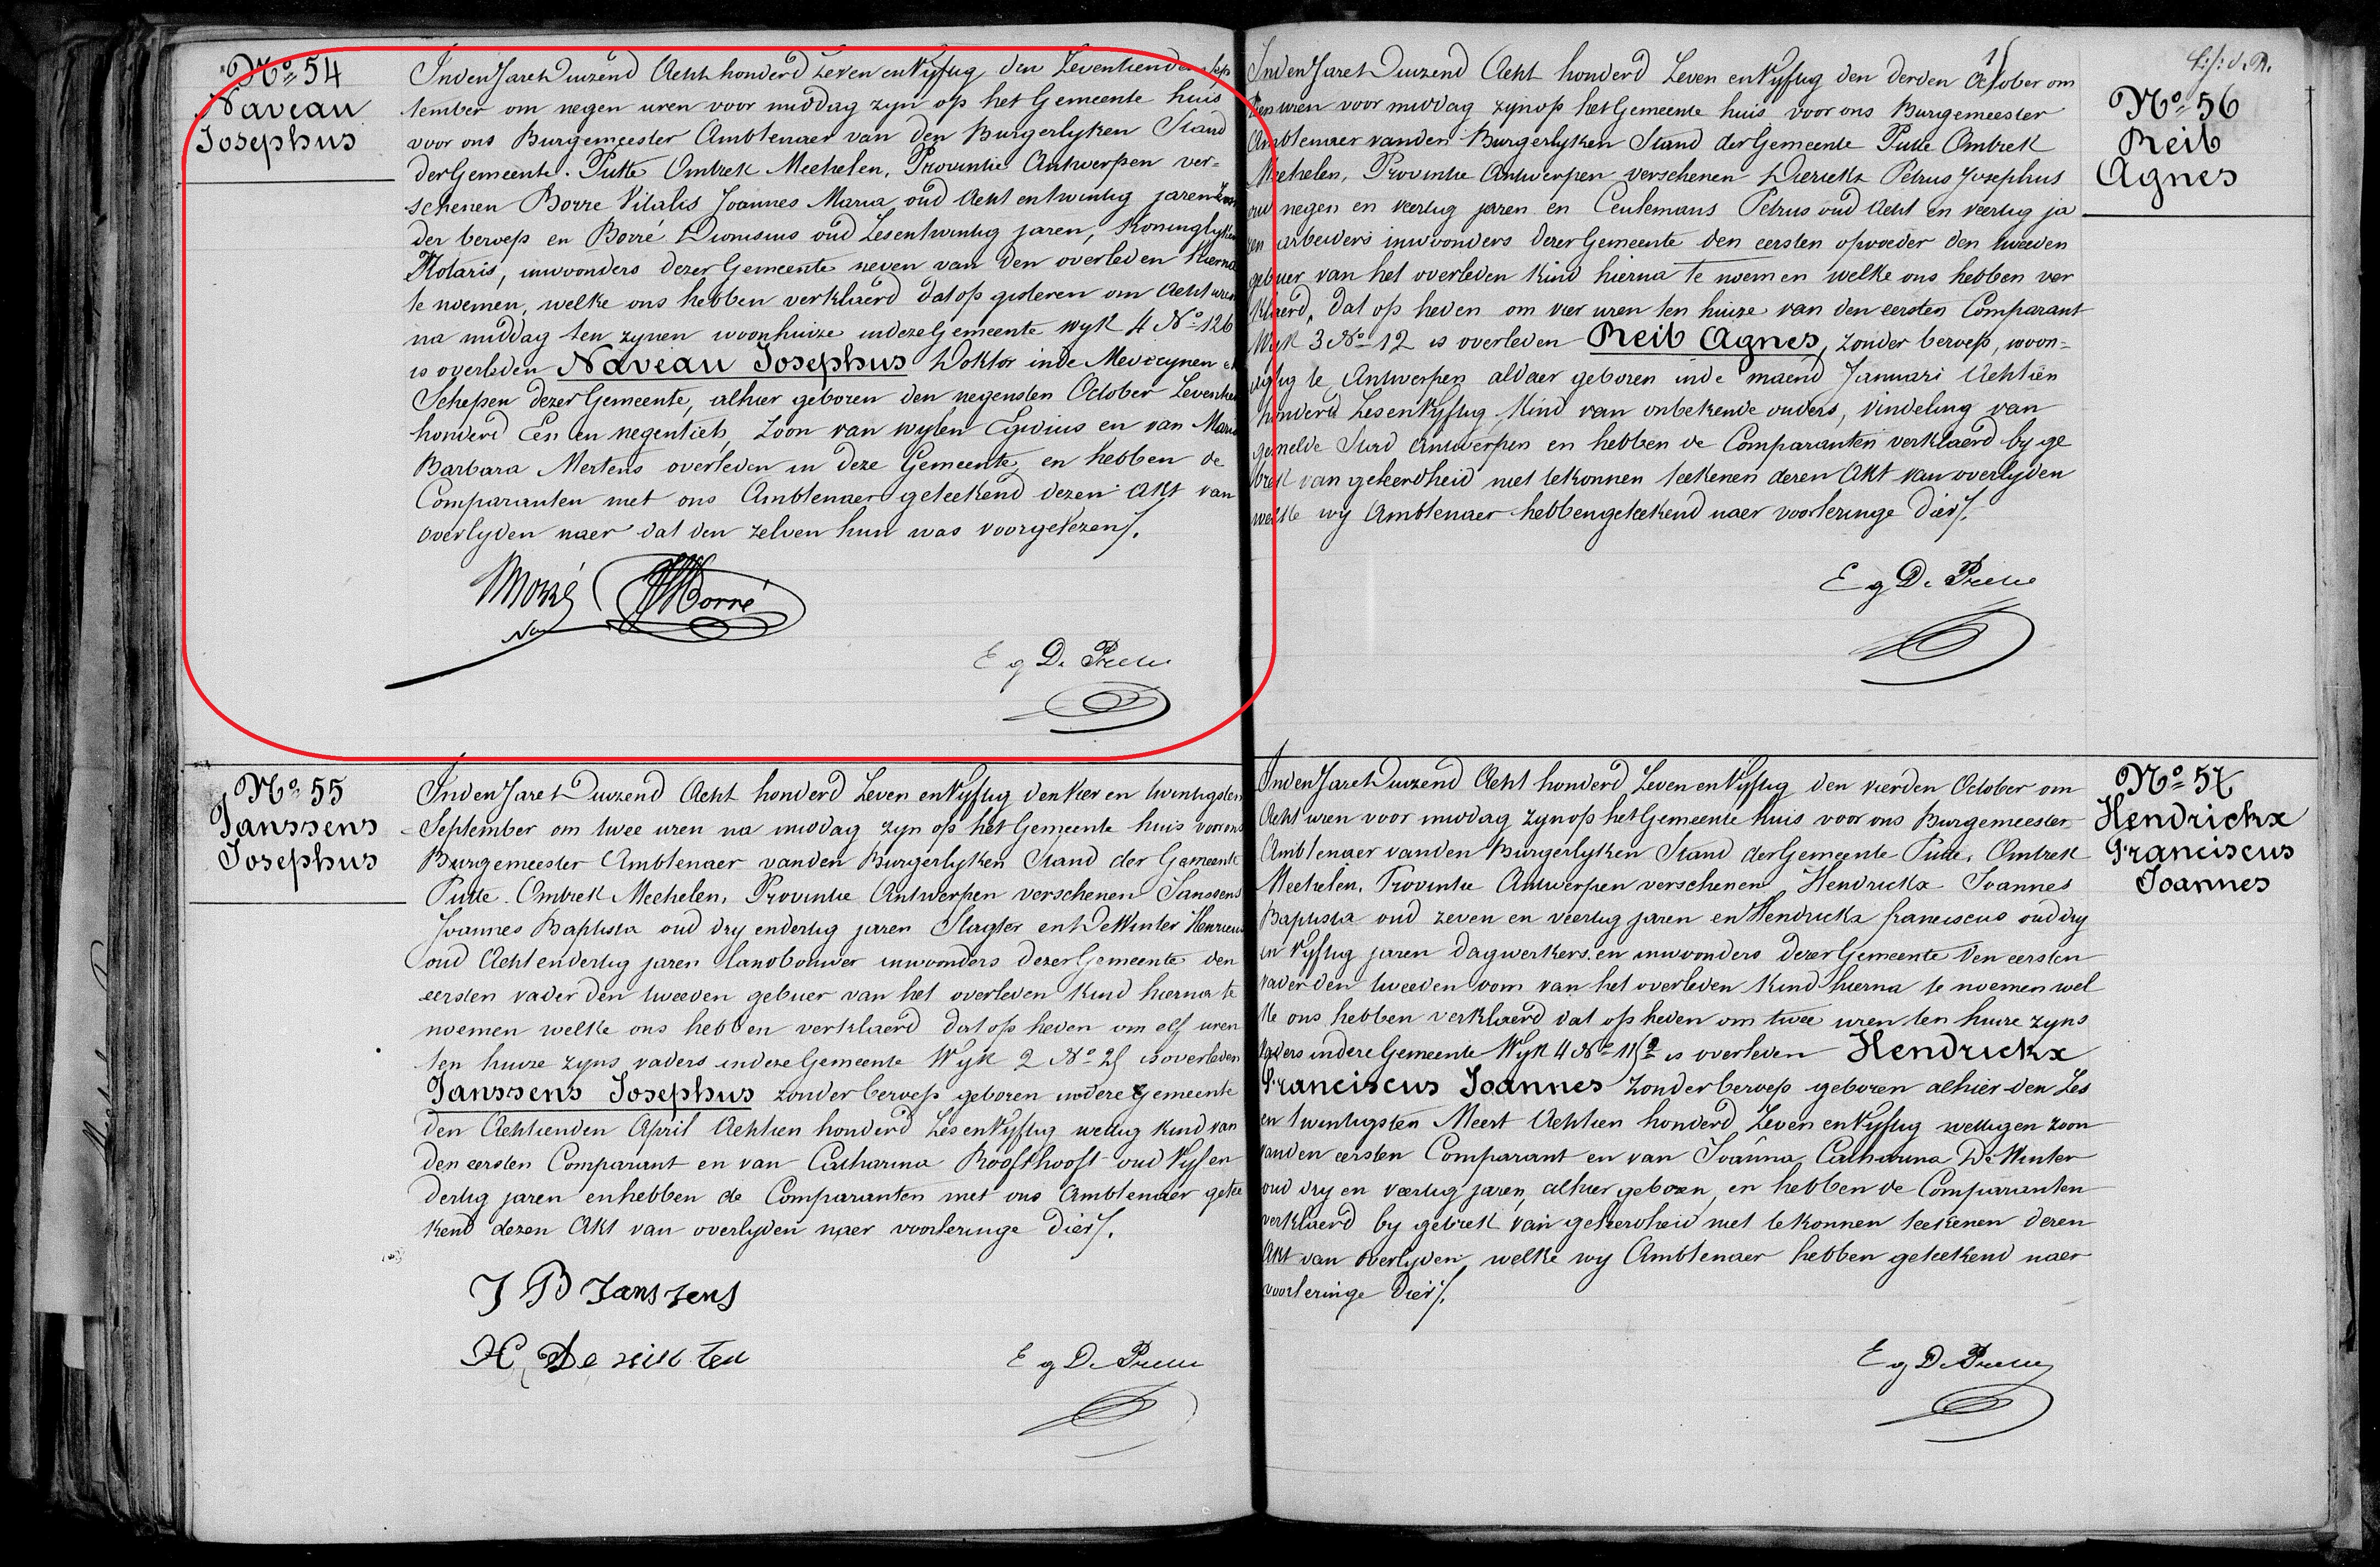 No 54
Naveau
Josephus
In den Jare Duizend Acht honderd zeven en Vyftig den Zeventienden sep
tember om negen uren voor middag zyn op het Gemeente huis
voor ons Burgemeester Ambtenaer van den Burgerlyken Stand
der Gemeente Putte Omtrek Mechelen, Provintie Antwerpen ver=
schenen Borre Vitalis Joannes Maria oud Acht en twintig jaren zon
der beroep en Borré Dionisius oud Zesentwintig jaren, Koninglyken
Notaris, inwoonders dezer Gemeente neven van den overleden hierna
te noemen, welke ons hebben verklaerd dat op gisteren om Acht uren
na middag ten zynen woonhuize in deze Gemeente Wyk 4 No 126
is overleden Naveau Josephus Doktor in de Medecynen en
Schepen dezer Gemeente, alhier geboren den negensten October Zeventien
honderd Een en negentich, Zoon van wylen Egidius en van Maria
Barbara Mertens overleden in deze Gemeente, en hebben de
Comparanten met ons Ambtenaer geteekend dezen Akt van
overlyden naer dat den zelven hun was voorgelezen /.
Borré
Borré
No
E g D. Preter
No 55
Janssens
Josephus
In den Jare Duizend Acht honderd Zeven en Vyftig den Vier en twintigsten
September om twee uren na middag zyn op het Gemeente huis voor ons
Burgemeester Ambtenaer van den Burgerlyken Stand der Gemeente
Putte Omtrek Mechelen, Provintie Antwerpen verschenen Janssens
Joannes Baptista oud dry en dertig jaren Slagter en De Winter Henricus
oud Acht en dertig jaren landbouwer inwoonders dezer Gemeente den
eersten vader den tweeden gebuer van het overleden Kind hierna te
noemen welke ons hebben verklaerd dat op heden om elf uren
ten huize zyns vaders in deze Gemeente Wyk 2 No 25 is overleden
Janssens Josephus zonder beroep geboren in deze gemeente
den Achtienden April Achtien honderd Zes en Vyftig wettig kind van
den eersten Comparant en van Catharina Roofthooft oud Vyf en
dertig jaren en hebben de Comparanten met ons Ambtenaer getee
kend dezen Akt van overlyden naer voorlezinge dier /.
J B Janssens
H De winter
E g D. Preter
No 56
Reib
Agnes
In den Jare Duizend Acht honderd Zeven en Vyftig den derden October om
tien uren voor middag zyn op het Gemeente huis voor ons Burgemeester
Ambtenaer van den Burgerlyken Stand der Gemeente Putte Omtrek
Mechelen, Provintie Antwerpen verschenen Dierickx Petrus Josephus
oud negen en veertig jaren en Ceulemans Petrus oud Acht en veertig ja
ren arbeiders inwoonders dezer Gemeente den eersten opvoeder den tweeden
gebuer van het overleden kind hierna te noemen welke ons hebben ver
klaerd, dat op heden om vier uren ten huize van den eersten Comparant
Wyk 3 No 12 is overleden Reib Agnes, zonder beroep, woon=
agtig te Antwerpen aldaer geboren in de maend Januari Achtien
honderd Zes en Vyftig, Kind van onbekende ouders, vindeling van
gemelde Stad Antwerpen en hebben de Comparanten verklaerd by ge
brek van geleerdheid niet te konnen teekenen dezen Akt van overlyden
welke wy Ambtenaer hebben geteekend naer voorlezinge dier /.
E g D. Preter
No 57
Hendrickx
Franciscus
Joannes
In den Jare Duizend Acht honderd Zeven en Vyftig den vierden October om
Acht uren voor middag zyn op het Gemeente huis voor ons Burgemeester
Ambtenaer van den Burgerlyken Stand der Gemeente Putte, Omtrek
Mechelen, Provintie Antwerpen verschenen Hendrickx Joannes
Baptista oud zeven en veertig jaren en Hendrickx franciscus oud dry
en Vyftig jaren dagwerkers en inwoonders dezer Gemeente den eersten
vader den tweeden oom van het overleden Kind hierna te noemen wel
ke ons hebben verklaerd dat op heden om twee uren ten huize zyns
vaders in deze Gemeente Wyk 4 No 115 2 is overleden Hendrickx
Franciscus Joannes zonder beroep geboren alhier den Zes
en twintigsten Meert Achtien honderd Zeven en Vyftig wettigen zoon
van den eersten Comparant en van Joanna Catharina De Winter
oud dry en veertig jaren, alhier geboren, en hebben de Comparanten
verklaerd by gebrek van geleerdheid niet te konnen teekenen dezen
Akt van overlyden, welke wy Ambtenaer hebben geteekend naer
voorlezinge dier /.
E g D. Preter